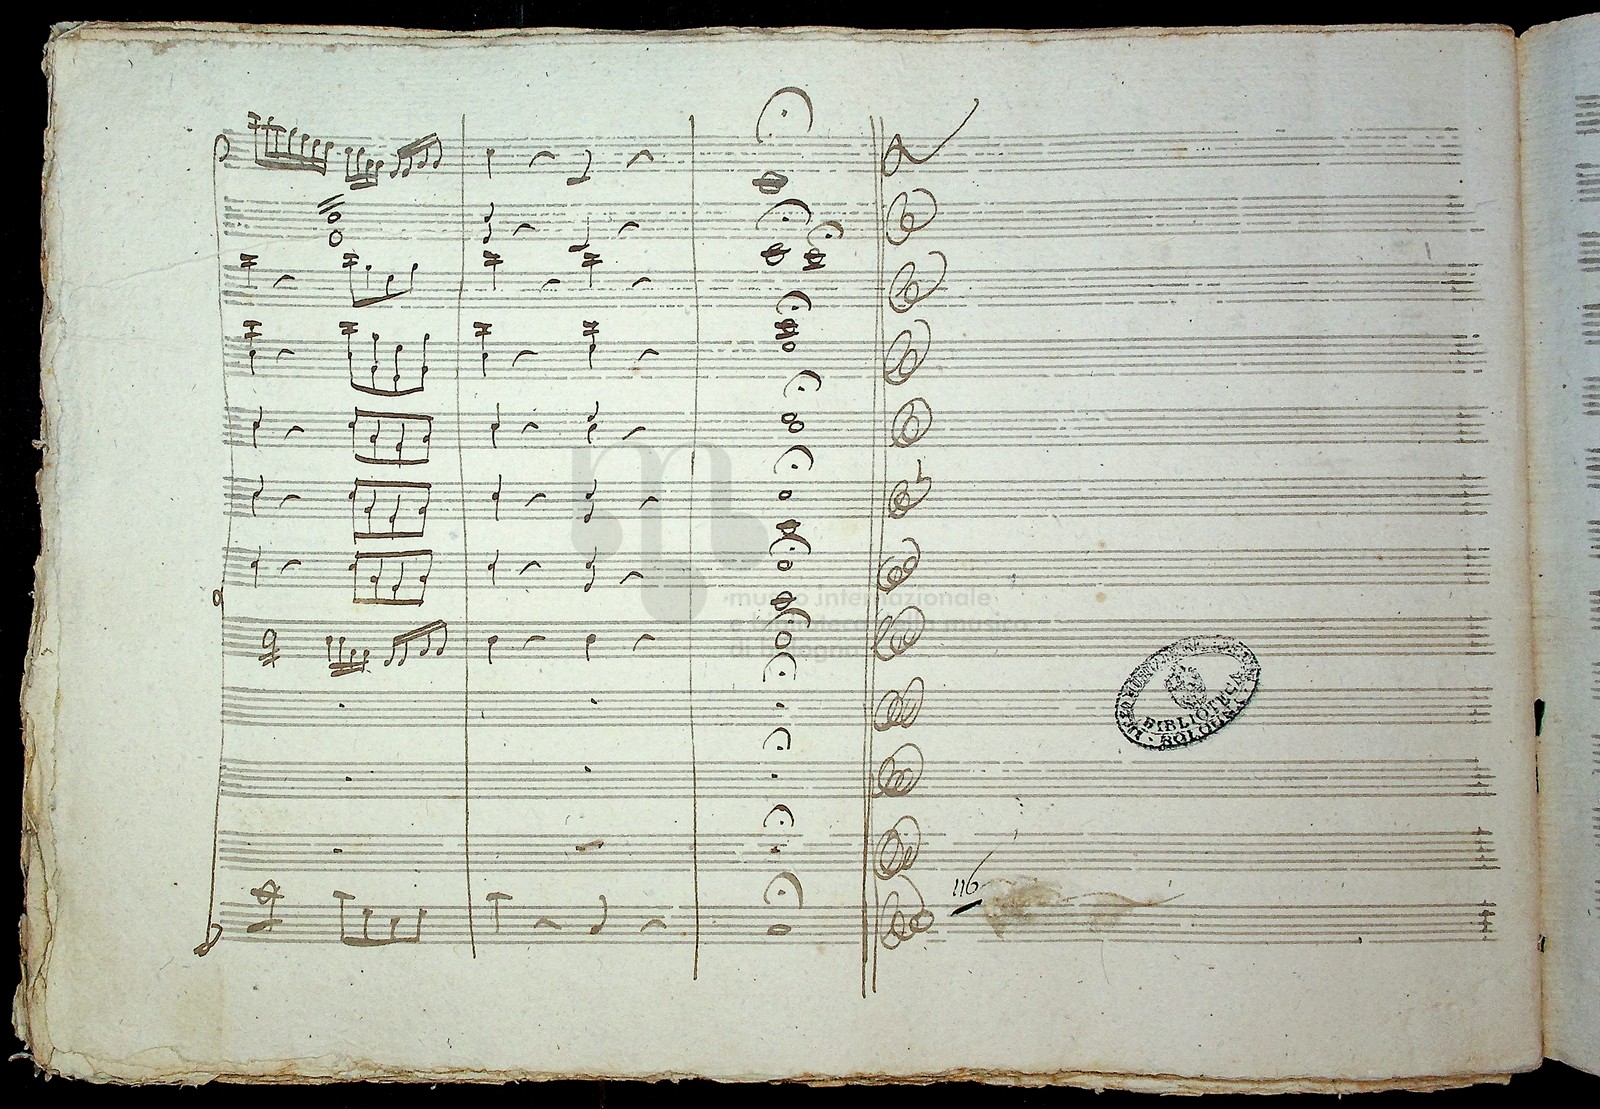 museo internazionale
e biblioteca della musica
di bologna
BIBLIOTECA
BOLOGNA
116